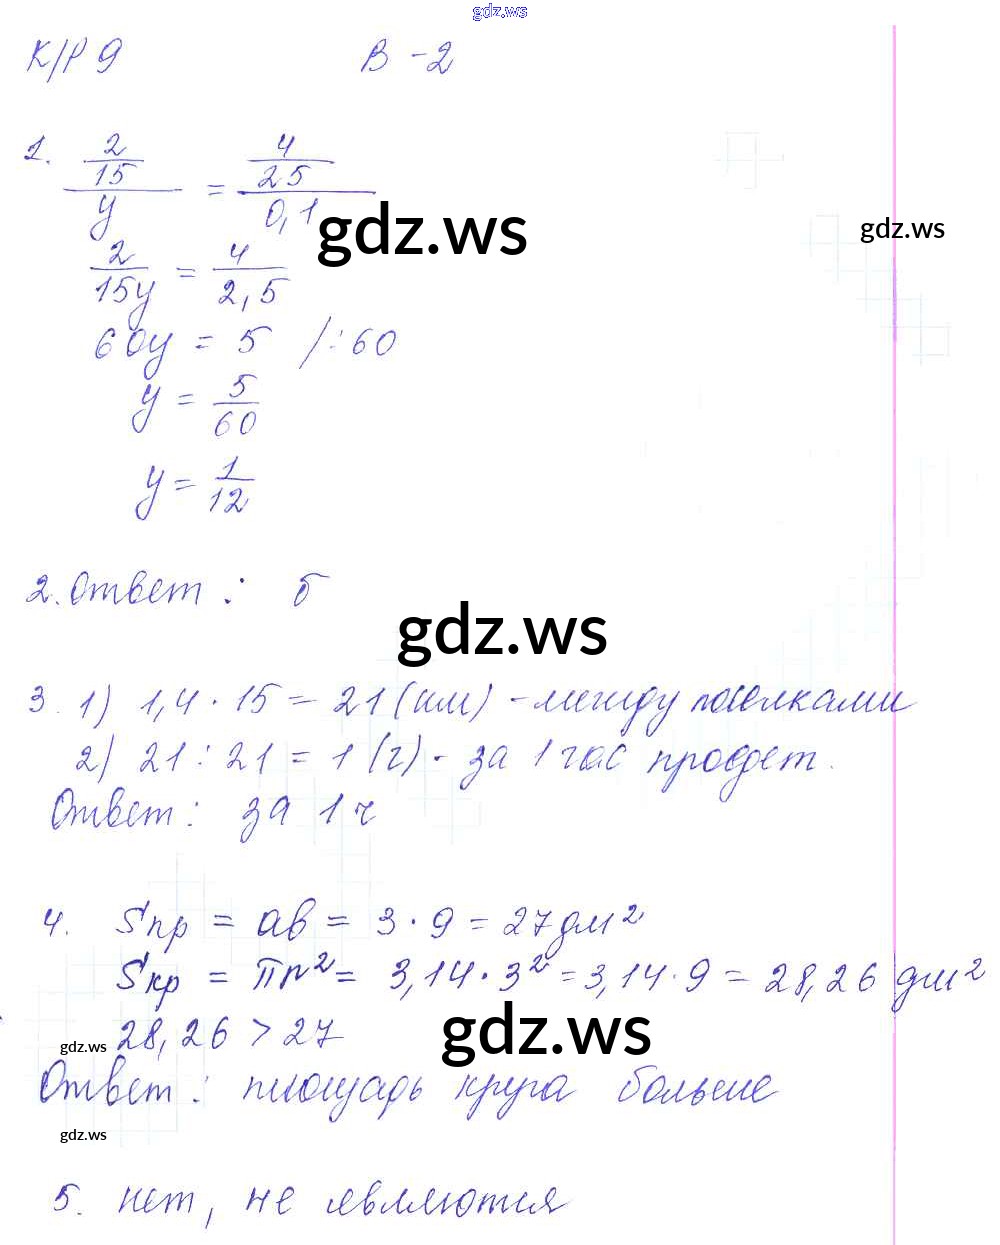 gdz.ws
К/Р 9 В - 2
1. 2/15 / y = 4/25 / 0,1
gdz.ws
gdz.ws
2/15y = 4/2,5
60y = 5 /:60
y = 5/60
y = 1/12
2. Ответ : б
gdz.ws
3. 1) 1,4 · 15 = 21 (км) - между посёлками
2) 21 : 21 = 1 (г) - за 1 час пройдет.
Ответ : за 1 ч
4. Sпр = ав = 3 · 9 = 27 дм²
Sкр = πr² = 3,14 · 3² = 3,14 · 9 = 28,26 дм²
28,26 > 27
gdz.ws
gdz.ws
Ответ : площадь круга больше
gdz.ws
5. нет, не являются